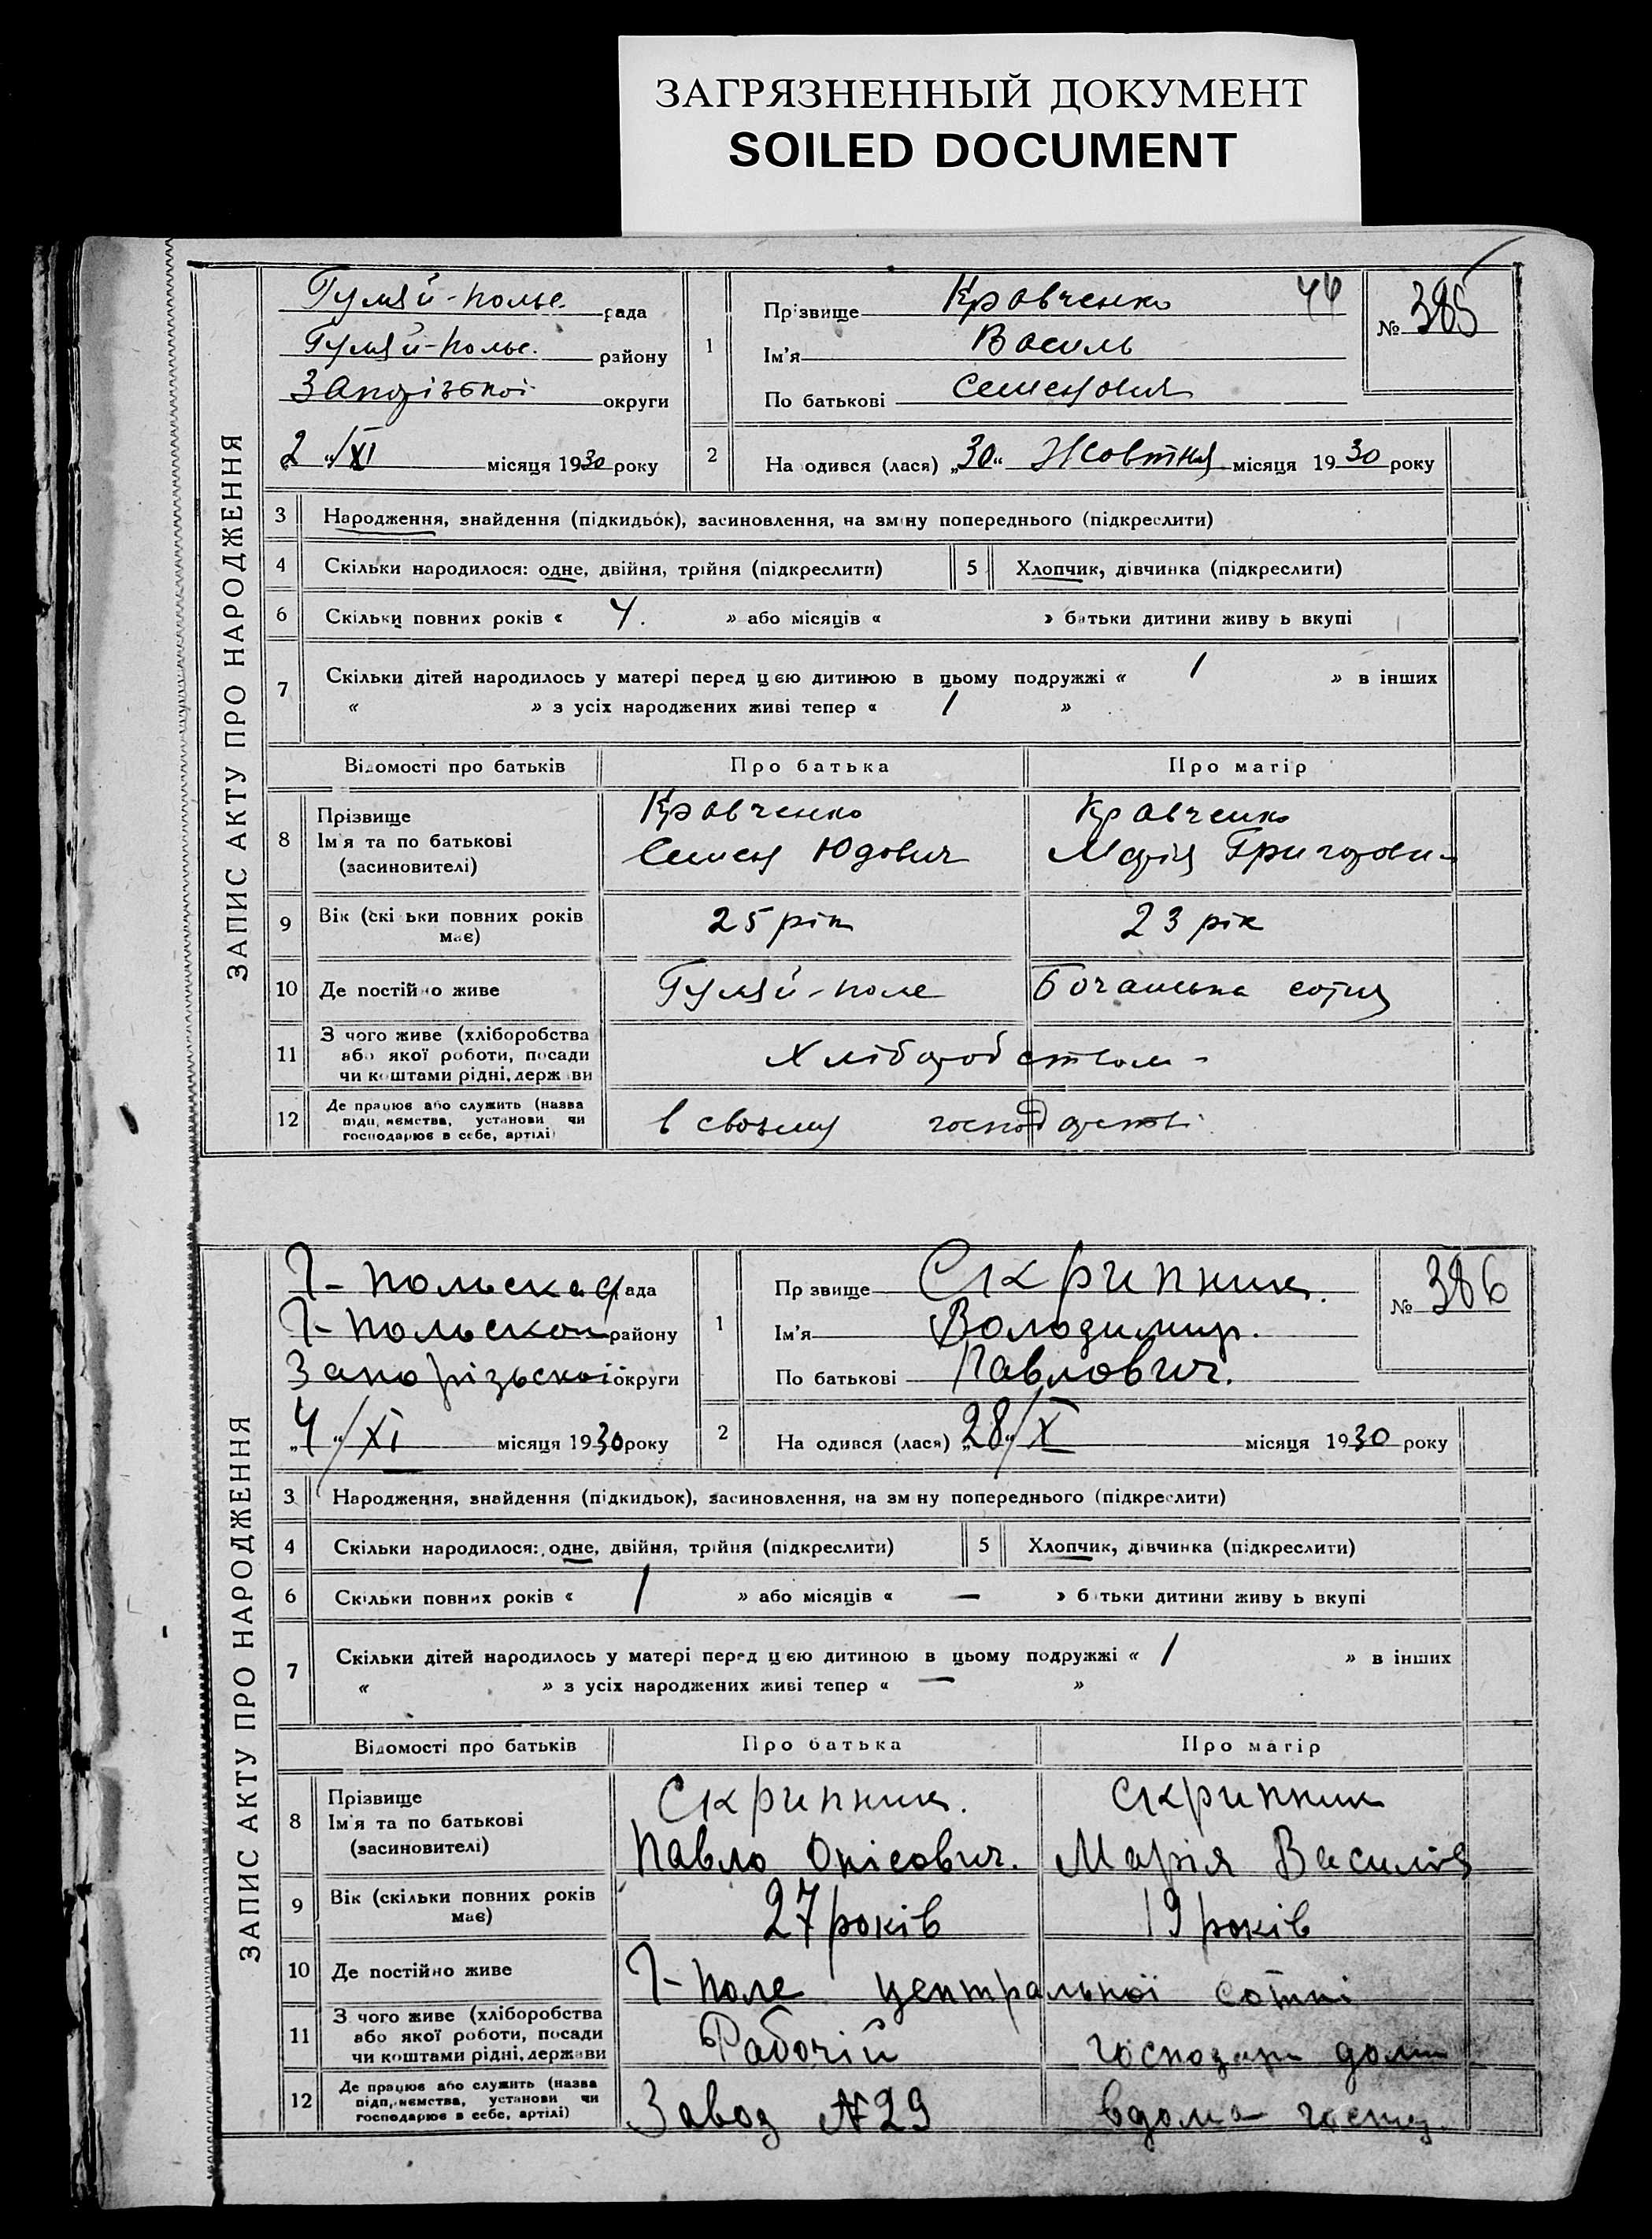 ЗАГРЯЗНЕННЫЙ ДОКУМЕНТ
SOILED DOCUMENT
ЗАПИС АКТУ ПРО НАРОДЖЕННЯ
Гуляй-Полье рада
Гуляй-Полье. району
округи
„2“/XI місяця 1930 року
1 Прізвище Кравченко
Ім'я Василь
По батькові Семенович
№ 385
2 На одився (лася) „30“ Жовтня місяця 1930 року
3 Народження, знайдення (підкидьок), засиновлення, на зміну попереднього (підкреслити)
4 Скільки народилося: одне, двійня, трійня (підкреслити) 5 Хлопчик, дівчинка (підкреслити)
6 Скільки повних років « 4. » або місяців « » батьки дитини живу ь вкупі
7 Скільки дітей народилось у матері перед цею дитиною в цьому подружжі « 1 » в інших
« » з усіх народжених живі тепер « 1 »
Відомості про батьків Про батька Про матір
8 Прізвище Кравченко Кравченко
Ім'я та по батькові Семен Юдович Марія
(засиновителі)
9 Вік (скі ьки повних років має) 25 рік 23 рік
10 Де постійно живе Гуляй-поле сотня
11 З чого живе (хліборобства
або якої роботи, посади Хліборобством
чи коштами рідні, держ ви
12 Де працює або служить (назва
підп, ємства, установи чи в своему
господарює в себе, артілі)
ЗАПИС АКТУ ПРО НАРОДЖЕННЯ
Г-Польская ада
Г-Польской району
Запорізьскої округи
„4“/XI місяця 1930 року
1 Пр звище Скрипник.
Ім'я Володимир.
По батькові Павлович.
№ 386
2 На одився (лася) „28“/X місяця 1930 року
3 Народження, знайдення (підкидьок), засиновлення, на зм ну попереднього (підкреслити)
4 Скільки народилося: одне, двійня, трійня (підкреслити) 5 Хлопчик, дівчинка (підкреслити)
6 Скільки повних років « 1 » або місяців « — » б тьки дитини живу ь вкупі
7 Скільки дітей народилось у матері перед цею дитиною в цьому подружжі « 1 » в інших
« » з усіх народжених живі тепер « — »
Відомості про батьків Про батька Про матір
8 Прізвище Скрипник. Скрипник
Ім'я та по батькові Павло Онісович. Марія
(засиновителі)
9 Вік (скільки повних років має) 27 років 19 років
10 Де постійно живе Г-Поле центральної сотні
11 З чого живе (хліборобства
або якої роботи, посади Рабочій господар дома
чи коштами рідні, держави
12 Де працює або служить (назва
підп, ємства, установи чи Завод №29 вдома
господарює в себе, артілі)